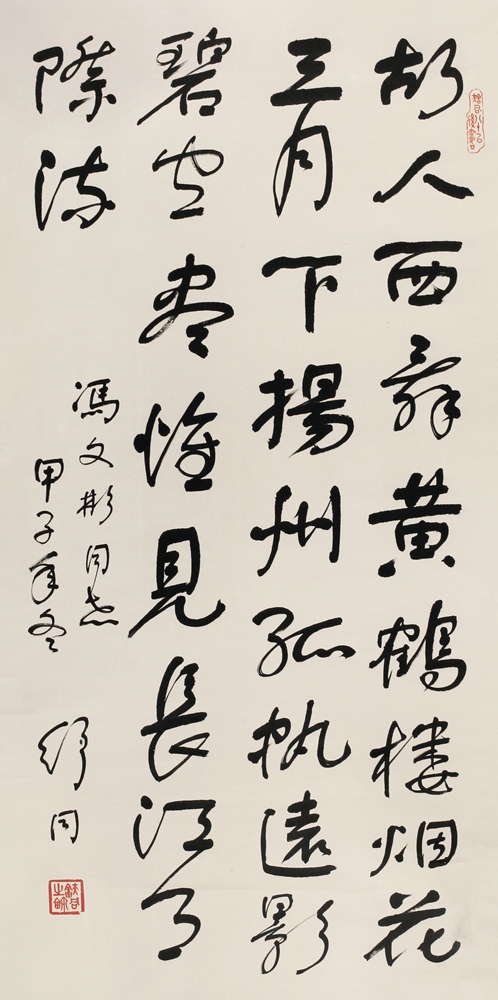 故人西辞黄鶴楼烟花
三月下揚州孤帆遠影
碧空尽惟見長江天
際流
馮文彬同志
甲子年冬
舒同